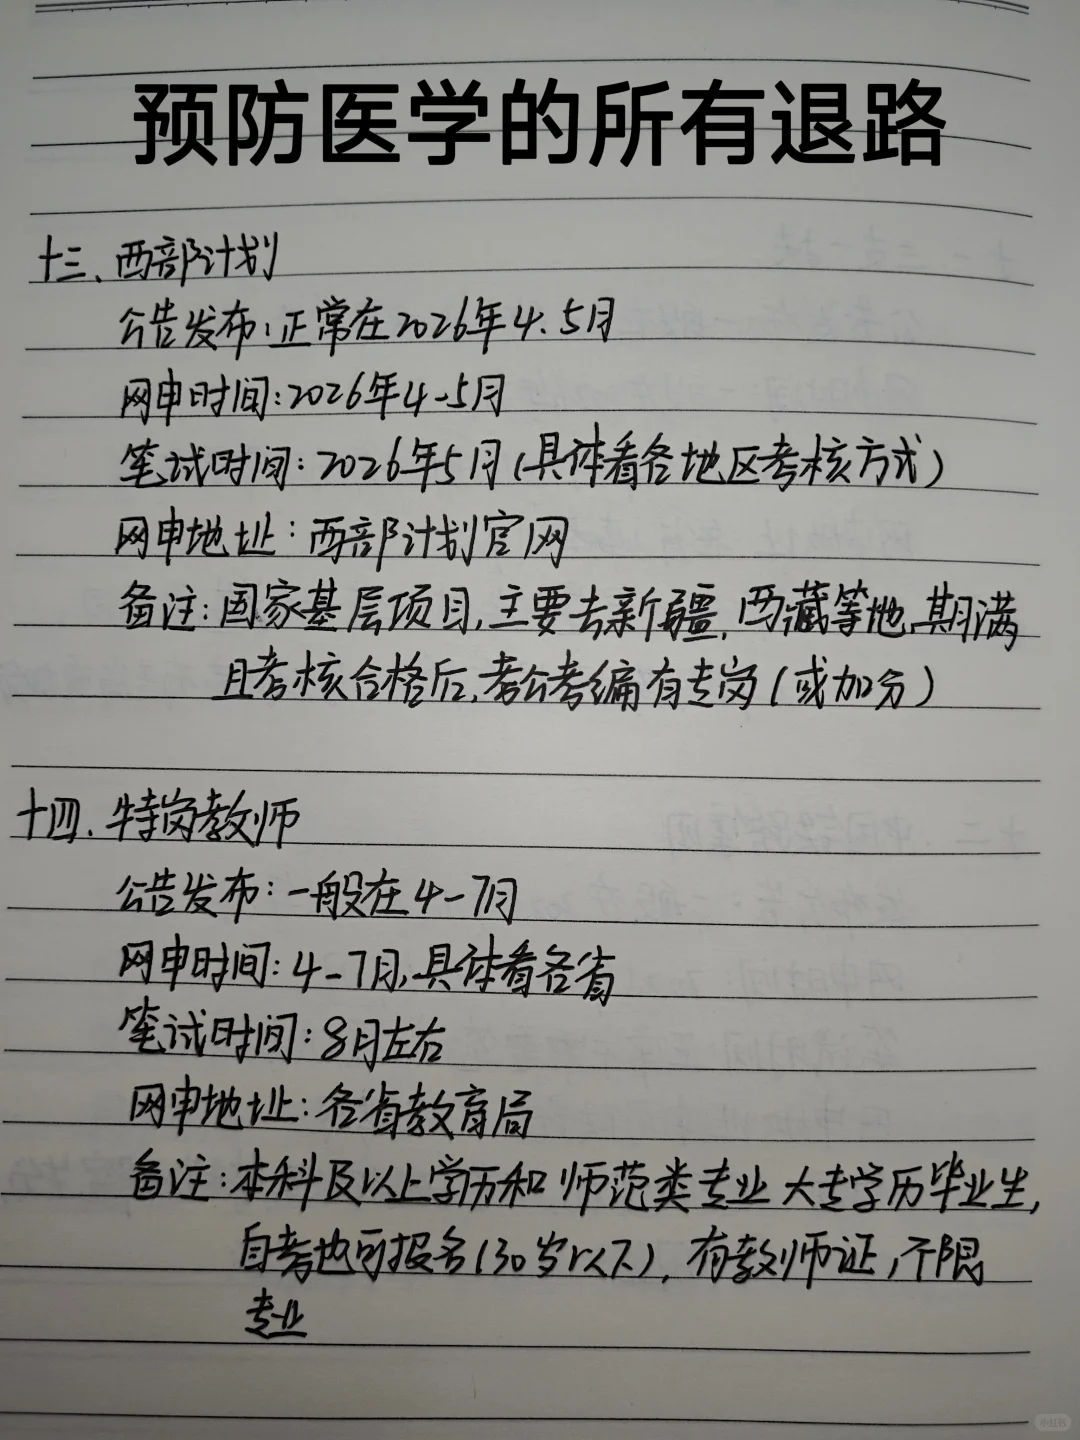 预防医学的所有退路
十三、西部计划
公告发布：正常在2026年4.5月
网申时间：2026年4-5月
笔试时间：2026年5月（具体看各地区考核方式）
网申地址：西部计划官网
备注：国家基层项目，主要去新疆，西藏等地，期满
且考核合格后，考公考编有专岗（或加分）
十四、特岗教师
公告发布：一般在4-7月
网申时间：4-7月，具体看各省
笔试时间：8月左右
网申地址：各省教育局
备注：本科及以上学历和师范类专业大专学历毕业生，
自考也可报名（30岁以下），有教师证，不限
专业
小红书